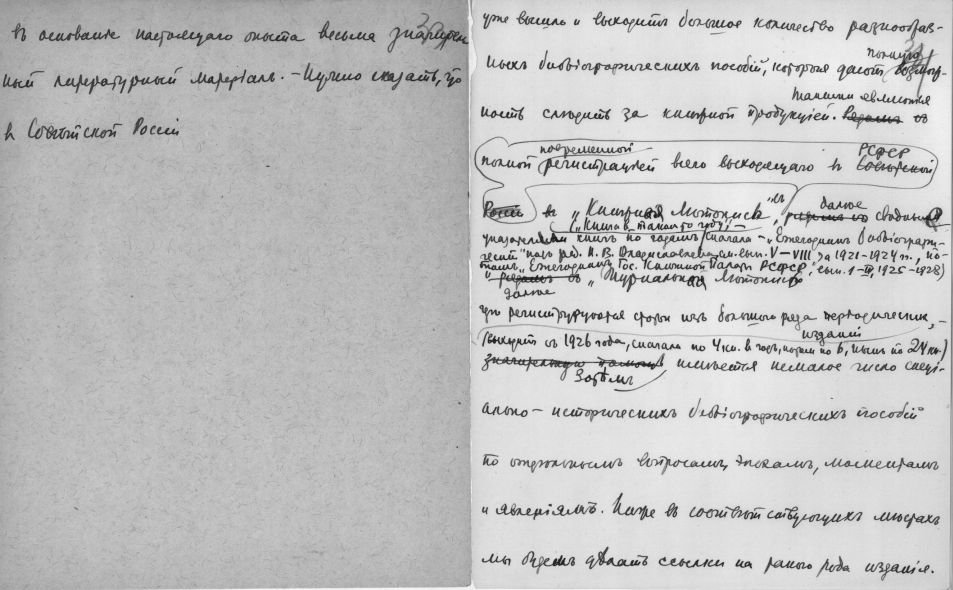 въ основанiе настоящаго опыта весьма
ный литературный матерiалъ. – Нужно сказать, что
въ Совѣтской Россiи
уже вышло и выходитъ большое количество разнообраз-
ныхъ библiографическихъ пособiй, которыя даютъ полную возмож-
ность слѣдить за книжной продукцiей. Таковыми являются
полной повременной регистрацiей всего выходящаго въ РСФСР Совѣтской
Россiи въ „Книжная Лѣтопись", далѣе сводные
(„Книга въ такомъ-то году",–
указатели книгъ по годамъ (сначала – „Ежегодникъ библiографи-
ческiй" подъ ред. И. В. Владиславлева, см. вып. V–VIII за 1921–1924 гг., по-
томъ „Ежегодникъ Гос. Книжной Палаты РСФСР", вып. I–III, 1925–1928)
далѣе „Журнальная Лѣтопись"
что регистрируются статьи изъ большого ряда перiодическихъ, –
изданiй
(выходитъ съ 1926 года, сначала по 4 кн. въ годъ, потомъ по 6, нынѣ по 24 кн.)
Затѣмъ имѣется немалое число спецi-
ально-историческихъ библiографическихъ пособiй
по отдѣльнымъ вопросамъ, эпохамъ, моментамъ
и явленiямъ. Ниже въ соотвѣтствующихъ мѣстахъ
мы будемъ дѣлать ссылки на такого рода изданiя.